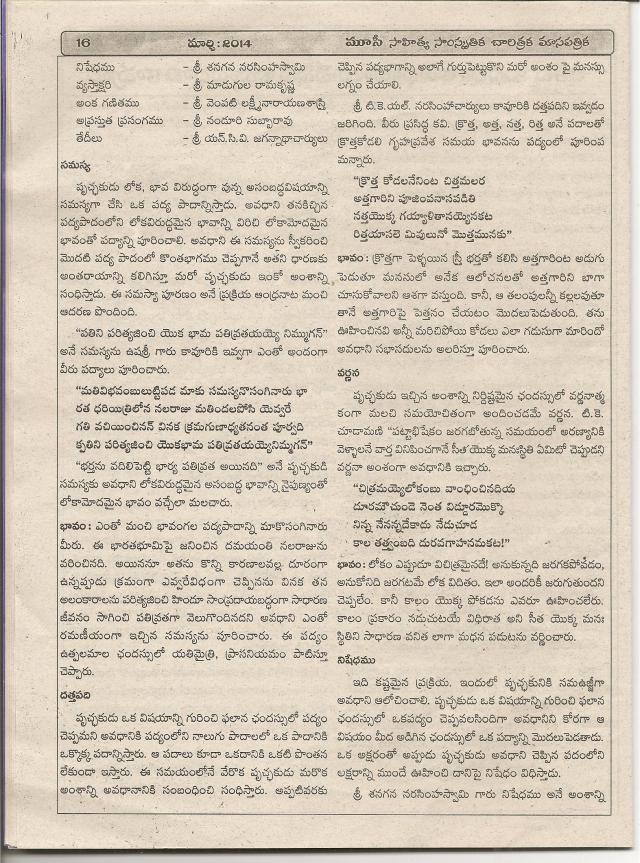 16 మార్చి: 2014 మూసీ సాహిత్య సాంస్కృతిక చారిత్రక మాసపత్రిక
నిషేధము – శ్రీ శనగన నరసింహస్వామి
వ్యస్తాక్షరి – శ్రీ మాడుగుల రామకృష్ణ
అంక గణితము – శ్రీ వెంపటి లక్ష్మీనారాయణశాస్త్రి
అప్రస్తుత ప్రసంగము – శ్రీ నందూరి సుబ్బారావు
తేదీలు – శ్రీ యన్.సి.వి. జగన్నాథాచార్యులు
సమస్య
పృచ్ఛకుడు లోక, భావ విరుద్ధంగా వున్న అసంబద్ధవిషయాన్ని
సమస్యగా చేసి ఒక పద్య పాదాన్నిస్తాడు. అవధాని తనకిచ్చిన
పద్యపాదంలోని లోకవిరుద్ధమైన భావాన్ని విరిచి లోకామోదమైన
భావంతో పద్యాన్ని పూరించాలి. అవధాని ఈ సమస్యను స్వీకరించి
మొదటి పద్య పాదంలో కొంతభాగము చెప్పగానే అతని ధారణకు
అంతరాయాన్ని కలిగిస్తూ మరో పృచ్ఛకుడు ఇంకో అంశాన్ని
సంధిస్తాడు. ఈ సమస్యా పూరణం అనే ప్రక్రియ ఆంధ్రనాట మంచి
ఆదరణ పొందింది.
“పతిని పరిత్యజించి యొక భామ పతివ్రతయయ్యె నిమ్ముగన్”
అనే సమస్యను ఉషశ్రీ గారు కావూరికి ఇవ్వగా ఎంతో అందంగా
వీరు పద్యాలు పూరించారు.
“మతివిభవంబులుట్టిపడ మాకు సమస్యనొసంగినారు భా
రత ధరియిత్రిలోన నలరాజు మతిందలపోసి యెవ్వరే
గతి వచియించినన్ వినక క్రమగుణాధ్యతనంత పూర్వది
క్పతిని పరిత్యజించి యొకభామ పతివ్రతయయ్యెనిమ్ముగన్”
“భర్తను వదిలిపెట్టి భార్య పతివ్రత అయినది” అనే పృచ్ఛకుడి
సమస్యకు అవధాని లోకవిరుద్ధమైన అసంబద్ధ భావాన్ని నైపుణ్యంతో
లోకామోదమైన భావం వచ్చేలా మలచారు.
భావం: ఎంతో మంచి భావంగల పద్యపాదాన్ని మాకొసంగినారు
మీరు. ఈ భారతభూమిపై జనించిన దమయంతి నలరాజును
వరించినది. అయిననూ అతను కొన్ని కారణాలవల్ల దూరంగా
ఉన్నప్పుడు క్రమంగా ఎవ్వరేవిధంగా చెప్పినను వినక తన
అలంకారాలను పరిత్యజించి హిందూ సాంప్రదాయబద్ధంగా సాధారణ
జీవనం సాగించి పతివ్రతగా వెలుగొందినదని అవధాని ఎంతో
రమణీయంగా ఇచ్చిన సమస్యను పూరించారు. ఈ పద్యం
ఉత్పలమాల ఛందస్సులో యతిమైత్రి, ప్రాసనియమం పాటిస్తూ
చెప్పారు.
దత్తపది
పృచ్ఛకుడు ఒక విషయాన్ని గురించి ఫలాన ఛందస్సులో పద్యం
చెప్పమని అవధానికి పద్యంలోని నాలుగు పాదాలలో ఒక పాదానికి
ఒక్కొక్క పదాన్నిస్తారు. ఆ పదాలు కూడా ఒకదానికి ఒకటి పొంతన
లేకుండా ఇస్తారు. ఈ సమయంలోనే వేరొక పృచ్ఛకుడు మరొక
అంశాన్ని అవధానానికి సంబంధించి సంధిస్తారు. అప్పటివరకు
చెప్పిన పద్యభాగాన్ని అలాగే గుర్తుపెట్టుకొని మరో అంశం పై మనస్సు
లగ్నం చేయాలి.
శ్రీ టి.కె.యల్. నరసింహాచార్యులు కావూరికి దత్తపదిని ఇవ్వడం
జరిగింది. వీరు ప్రసిద్ధ కవి. క్రొత్త, అత్త, నత్త, రిత్త అనే పదాలతో
క్రొత్తకోడలి గృహప్రవేశ సమయ భావనను పద్యంలో పూరింప
మన్నారు.
“క్రొత్త కోడలనేనింట చిత్తమలర
అత్తగారిని పూజింపనాసపడితి
నత్తయొక్క గయ్యాళితానయ్యెనకట
రిత్తయాసలె మిపులునో మొత్తమునకు”
భావం: క్రొత్తగా పెళ్ళయిన స్త్రీ భర్తతో కలిసి అత్తగారింట అడుగు
పెడుతూ మనసులో అనేక ఆలోచనలతో అత్తగారిని బాగా
చూసుకోవాలని ఆశగా వస్తుంది. కానీ, ఆ తలంపులన్నీ కల్లలవుతూ
తానే అత్తగారిపై పెత్తనం చేయటం మొదలుపెడుతుంది. తను
ఊహించినవి అన్నీ మరిచిపోయి కోడలు ఎలా గడుసుగా మారిందో
అవధాని సభాసదులను అలరిస్తూ పూరించారు.
వర్ణన
పృచ్ఛకుడు ఇచ్చిన అంశాన్ని నిర్దిష్టమైన ఛందస్సులో వర్ణనాత్మ
కంగా మలచి సమయోచితంగా అందించడమే వర్ణన. టి.కె.
చూడామణి “పట్టాభిషేకం జరగబోతున్న సమయంలో అరణ్యానికి
వెళ్ళాలనే వార్త వినిపించగానే సీత యొక్క మనఃస్థితి ఏమిటో చెప్పుడని
వర్ణనా అంశంగా అవధానికి ఇచ్చారు.
“చిత్రమయ్యెలోకంబు వాంఛించినదియ
దూరమౌచుండె నెంత విడ్డూరమొక్కొ
నిన్న నేసన్నదేకాదు నేడుచూడ
కాల తత్త్వంబది దురవగాహనమకట!”
భావం: లోకం ఎప్పుడూ విచిత్రమైనదే! అనుకున్నది జరగకపోవడం,
అనుకోనిది జరగటమే లోక విదితం. ఇలా అందరికీ జరుగుతుందని
చెప్పలేం. కానీ కాలం యొక్క పోకడను ఎవరూ ఊహించలేరు.
కాలం ప్రకారం నడుచుటయే విధిరాత అని సీత యొక్క మనః
స్థితిని సాధారణ వనిత లాగా మధన పడుటను వర్ణించారు.
నిషేధము
ఇది కష్టమైన ప్రక్రియ. ఇందులో పృచ్ఛకునికి సమఉజ్జీగా
అవధాని ఆలోచించాలి. పృచ్ఛకుడు ఒక విషయాన్ని గురించి ఫలాన
ఛందస్సులో ఒకపద్యం చెప్పవలసిందిగా అవధానిని కోరగా ఆ
విషయం మీద అడిగిన ఛందస్సులో ఒక పద్యాన్ని మొదలుపెడతాడు.
ఒక అక్షరంతో అప్పుడు పృచ్ఛకుడు అవధాని చెప్పిన పదంలోని
లక్షరాన్ని ముందే ఊహించి దానిపై నిషేధం విధిస్తాడు.
శ్రీ శనగన నరసింహస్వామి గారు నిషేధము అనే అంశాన్ని